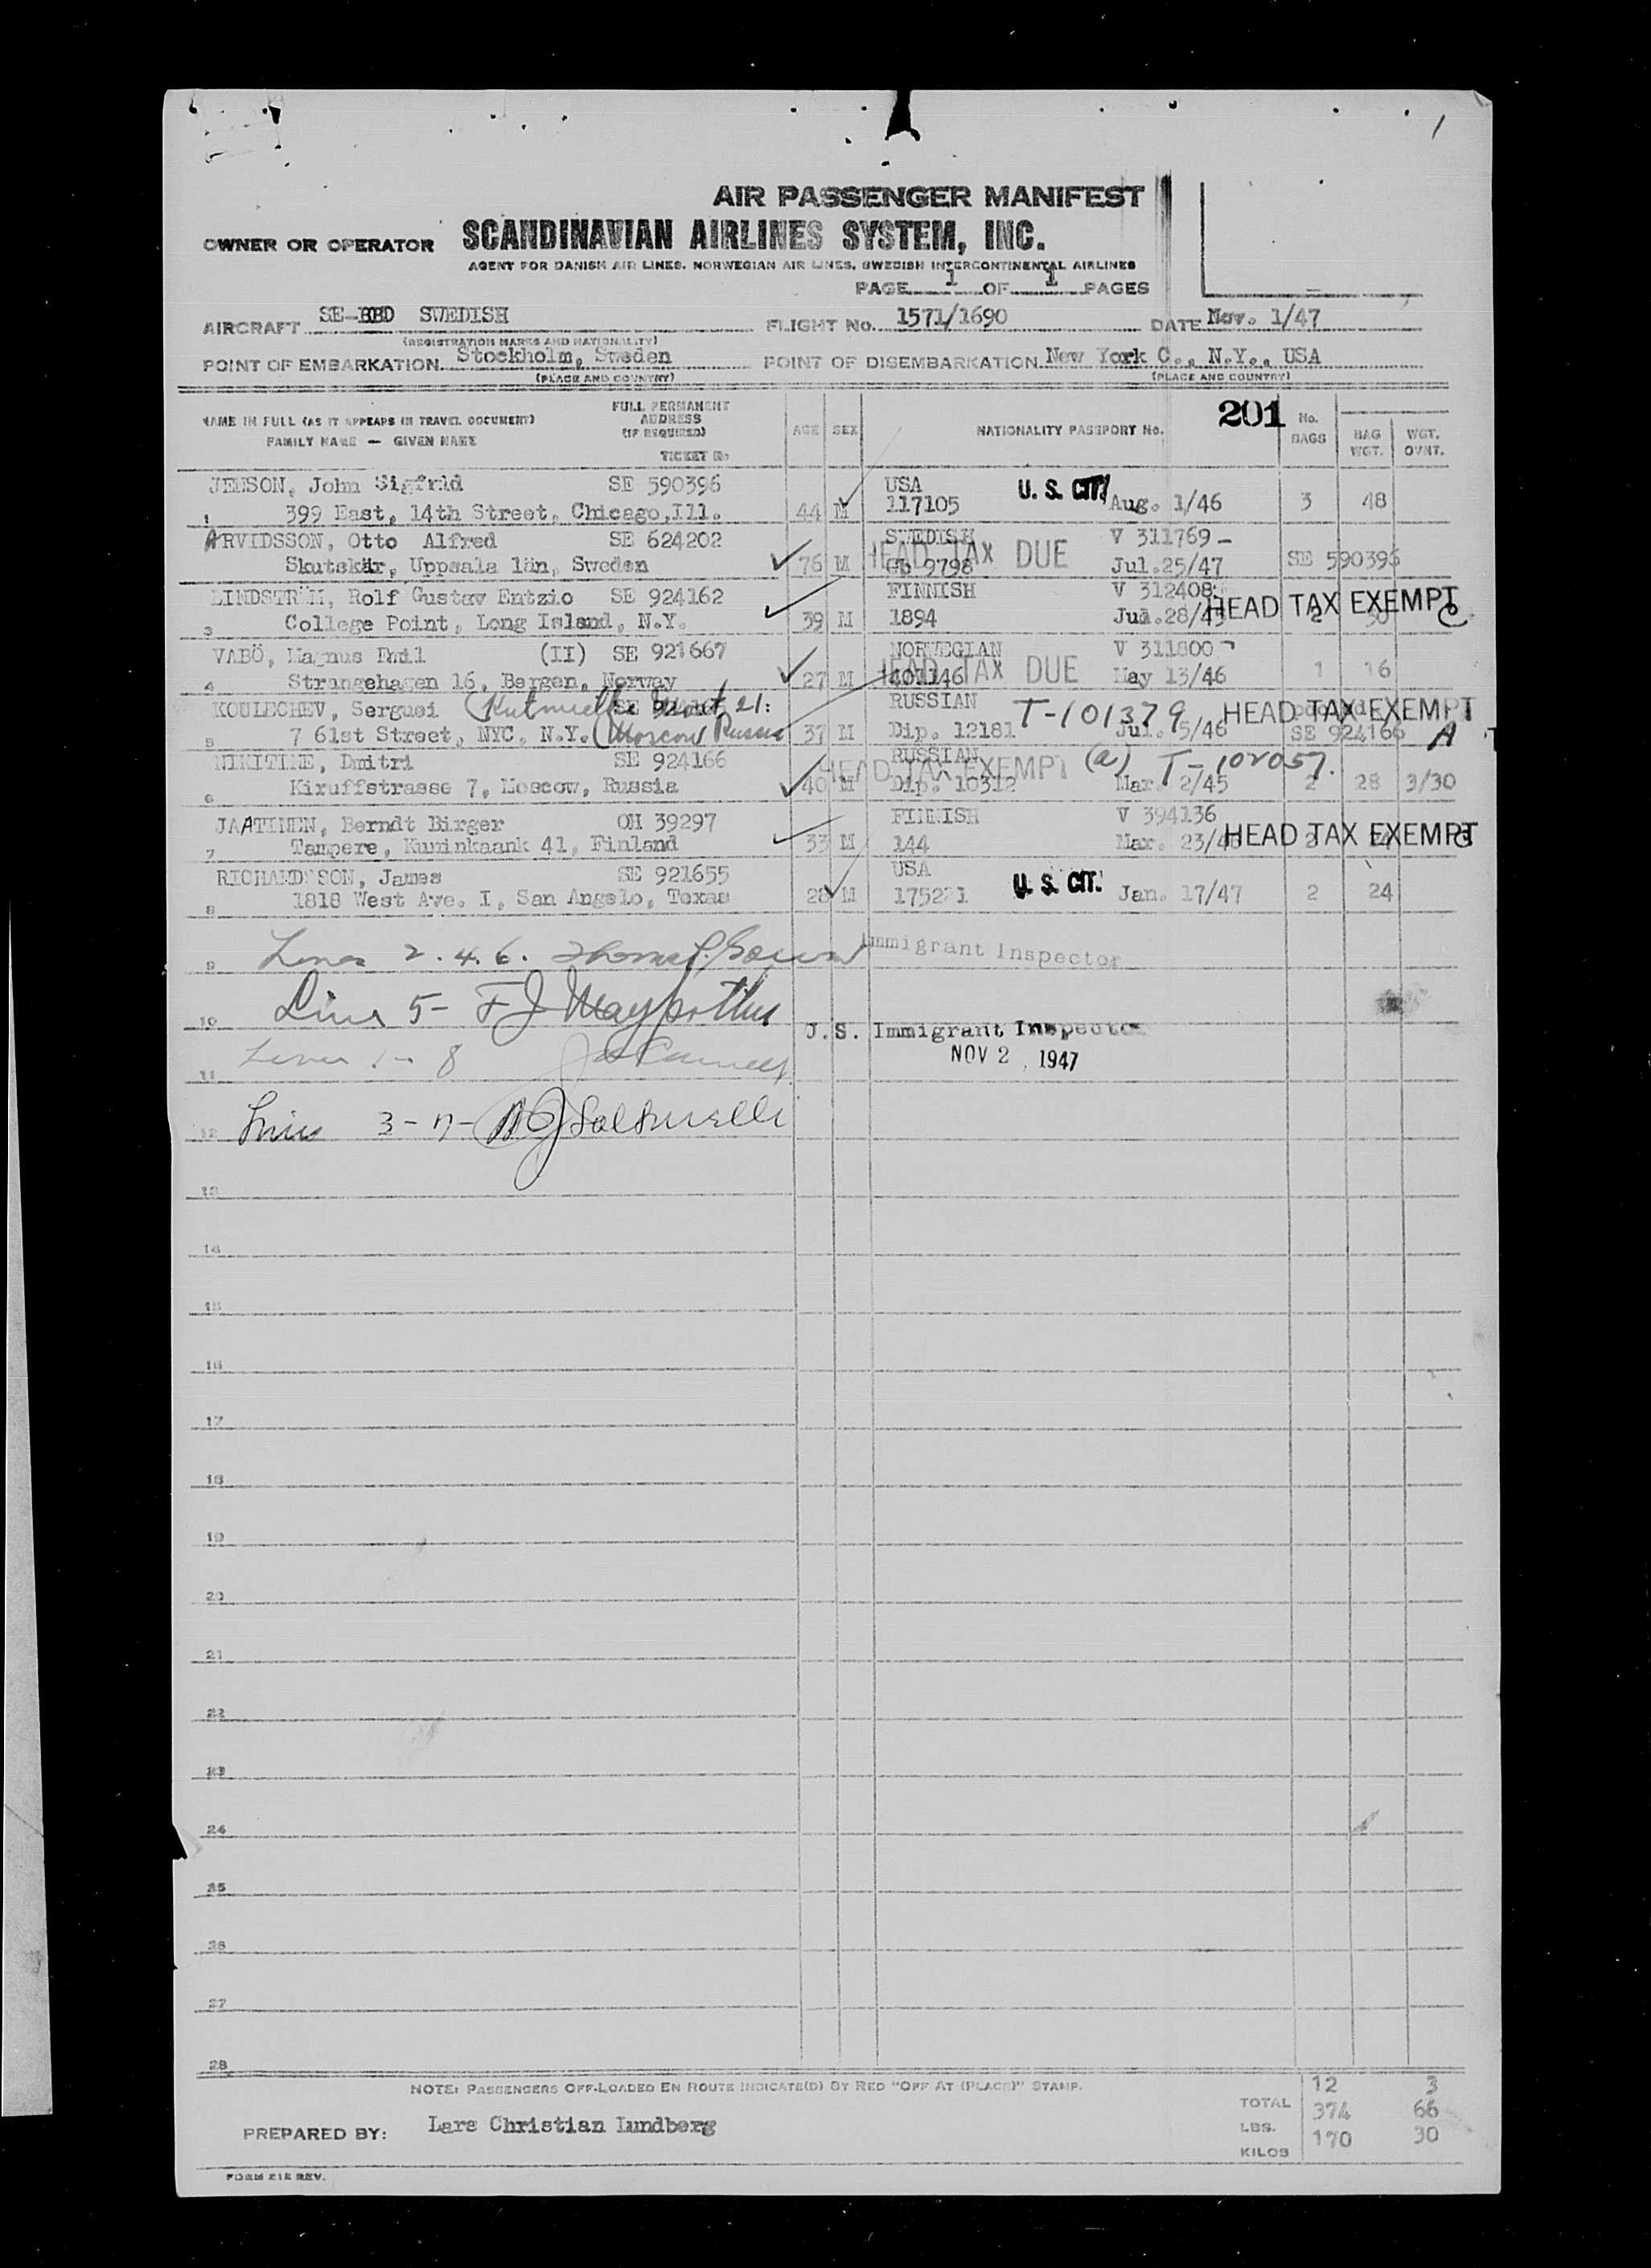 1
AIR PASSENGER MANIFEST
OWNER OR OPERATOR SCANDINAVIAN AIRLINES SYSTEM, INC.
AGENT FOR DANISH AIR LINES, NORWEGIAN AIR LINES, SWEDISH INTERCONTINENTAL AIRLINES
PAGE 1 OF 1 PAGES
AIRCRAFT SE-BBD SWEDISH FLIGHT No. 1571/1690 DATE Nov. 1/47
(REGISTRATION MARKS AND NATIONALITY)
POINT OF EMBARKATION Stockholm, Sweden POINT OF DISEMBARKATION New York C., N.Y., USA
(PLACE AND COUNTRY) (PLACE AND COUNTRY)
NAME IN FULL (AS IT APPEARS IN TRAVEL DOCUMENT) FAMILY NAME — GIVEN NAME
FULL PERMANENT ADDRESS (IF REQUIRED) TICKET No
AGE SEX NATIONALITY PASSPORT No. 201 No. BAGS BAG WGT. WGT. OVNT.
JENSON, John Sigfrid SE 590396 USA U. S. CIT.
1 399 East, 14th Street, Chicago, Ill. 44 M 117105 Aug. 1/46 3 48
ARVIDSSON, Otto Alfred SE 624202 SWEDISH HEAD TAX DUE V 311769 –
Skutskär, Uppsala län, Sweden 76 M Gb 9798 Jul.25/47 SE 590396
LINDSTRÖM, Rolf Gustav Entzio SE 924162 FINNISH V 312408
3 College Point, Long Island, N.Y. 39 M 1894 HEAD TAX EXEMPT
VABÖ, Magnus Emil (II) SE 921667 NORWEGIAN HEAD TAX DUE V 311800
4 Strangehagen 16, Bergen, Norway 27 M May 13/46 1 16
KOULECHEV, Serguei 21: RUSSIAN T-101379 HEAD TAX EXEMPT
5 7 61st Street, NYC, N.Y. (Moscow Russia 37 M Dip. 12181 Jul. 5/46 SE 924166 A
NIKITINE, Dmitri SE 924166 RUSSIAN HEAD TAX EXEMPT (a) T-102057.
6 Kiruffstrasse 7, Moscow, Russia 40 M Dip. 10312 Mar. 2/45 2 28 3/30
JAATINEN, Berndt Birger OH 39297 FINNISH V 394136
7 Tampere, Kuninkaank 41, Finland 33 M 144 HEAD TAX EXEMPT
RICHARDSSON, James SE 921655 USA U. S. CIT.
8 1818 West Ave. I, San Angelo, Texas 28 M 175221 Jan. 17/47 2 24
9 Lines 2. 4. 6. Immigrant Inspector
10 Line 5- F J U.S. Immigrant Inspector
NOV 2, 1947
11 Lines 1- 8
12 Lines 3-7-
13
14
15
16
17
18
19
20
21
22
23
24
25
26
27
28
NOTE: PASSENGERS OFF-LOADED EN ROUTE INDICATE(D) BY RED "OFF AT (PLACE)" STAMP.
12 3
TOTAL 374 66
LBS. 170 30
KILOS
PREPARED BY: Lars Christian Lundberg
FORM 21R REV.